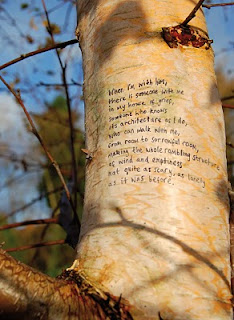 When I'm with you,
there is someone with me
in my house of grief,
someone who knows
its architecture as I do,
who can walk with me,
from room to sorrowful room,
making the whole rambling structure
of wind and emptiness
not quite as scary, as lonely
as it was before.